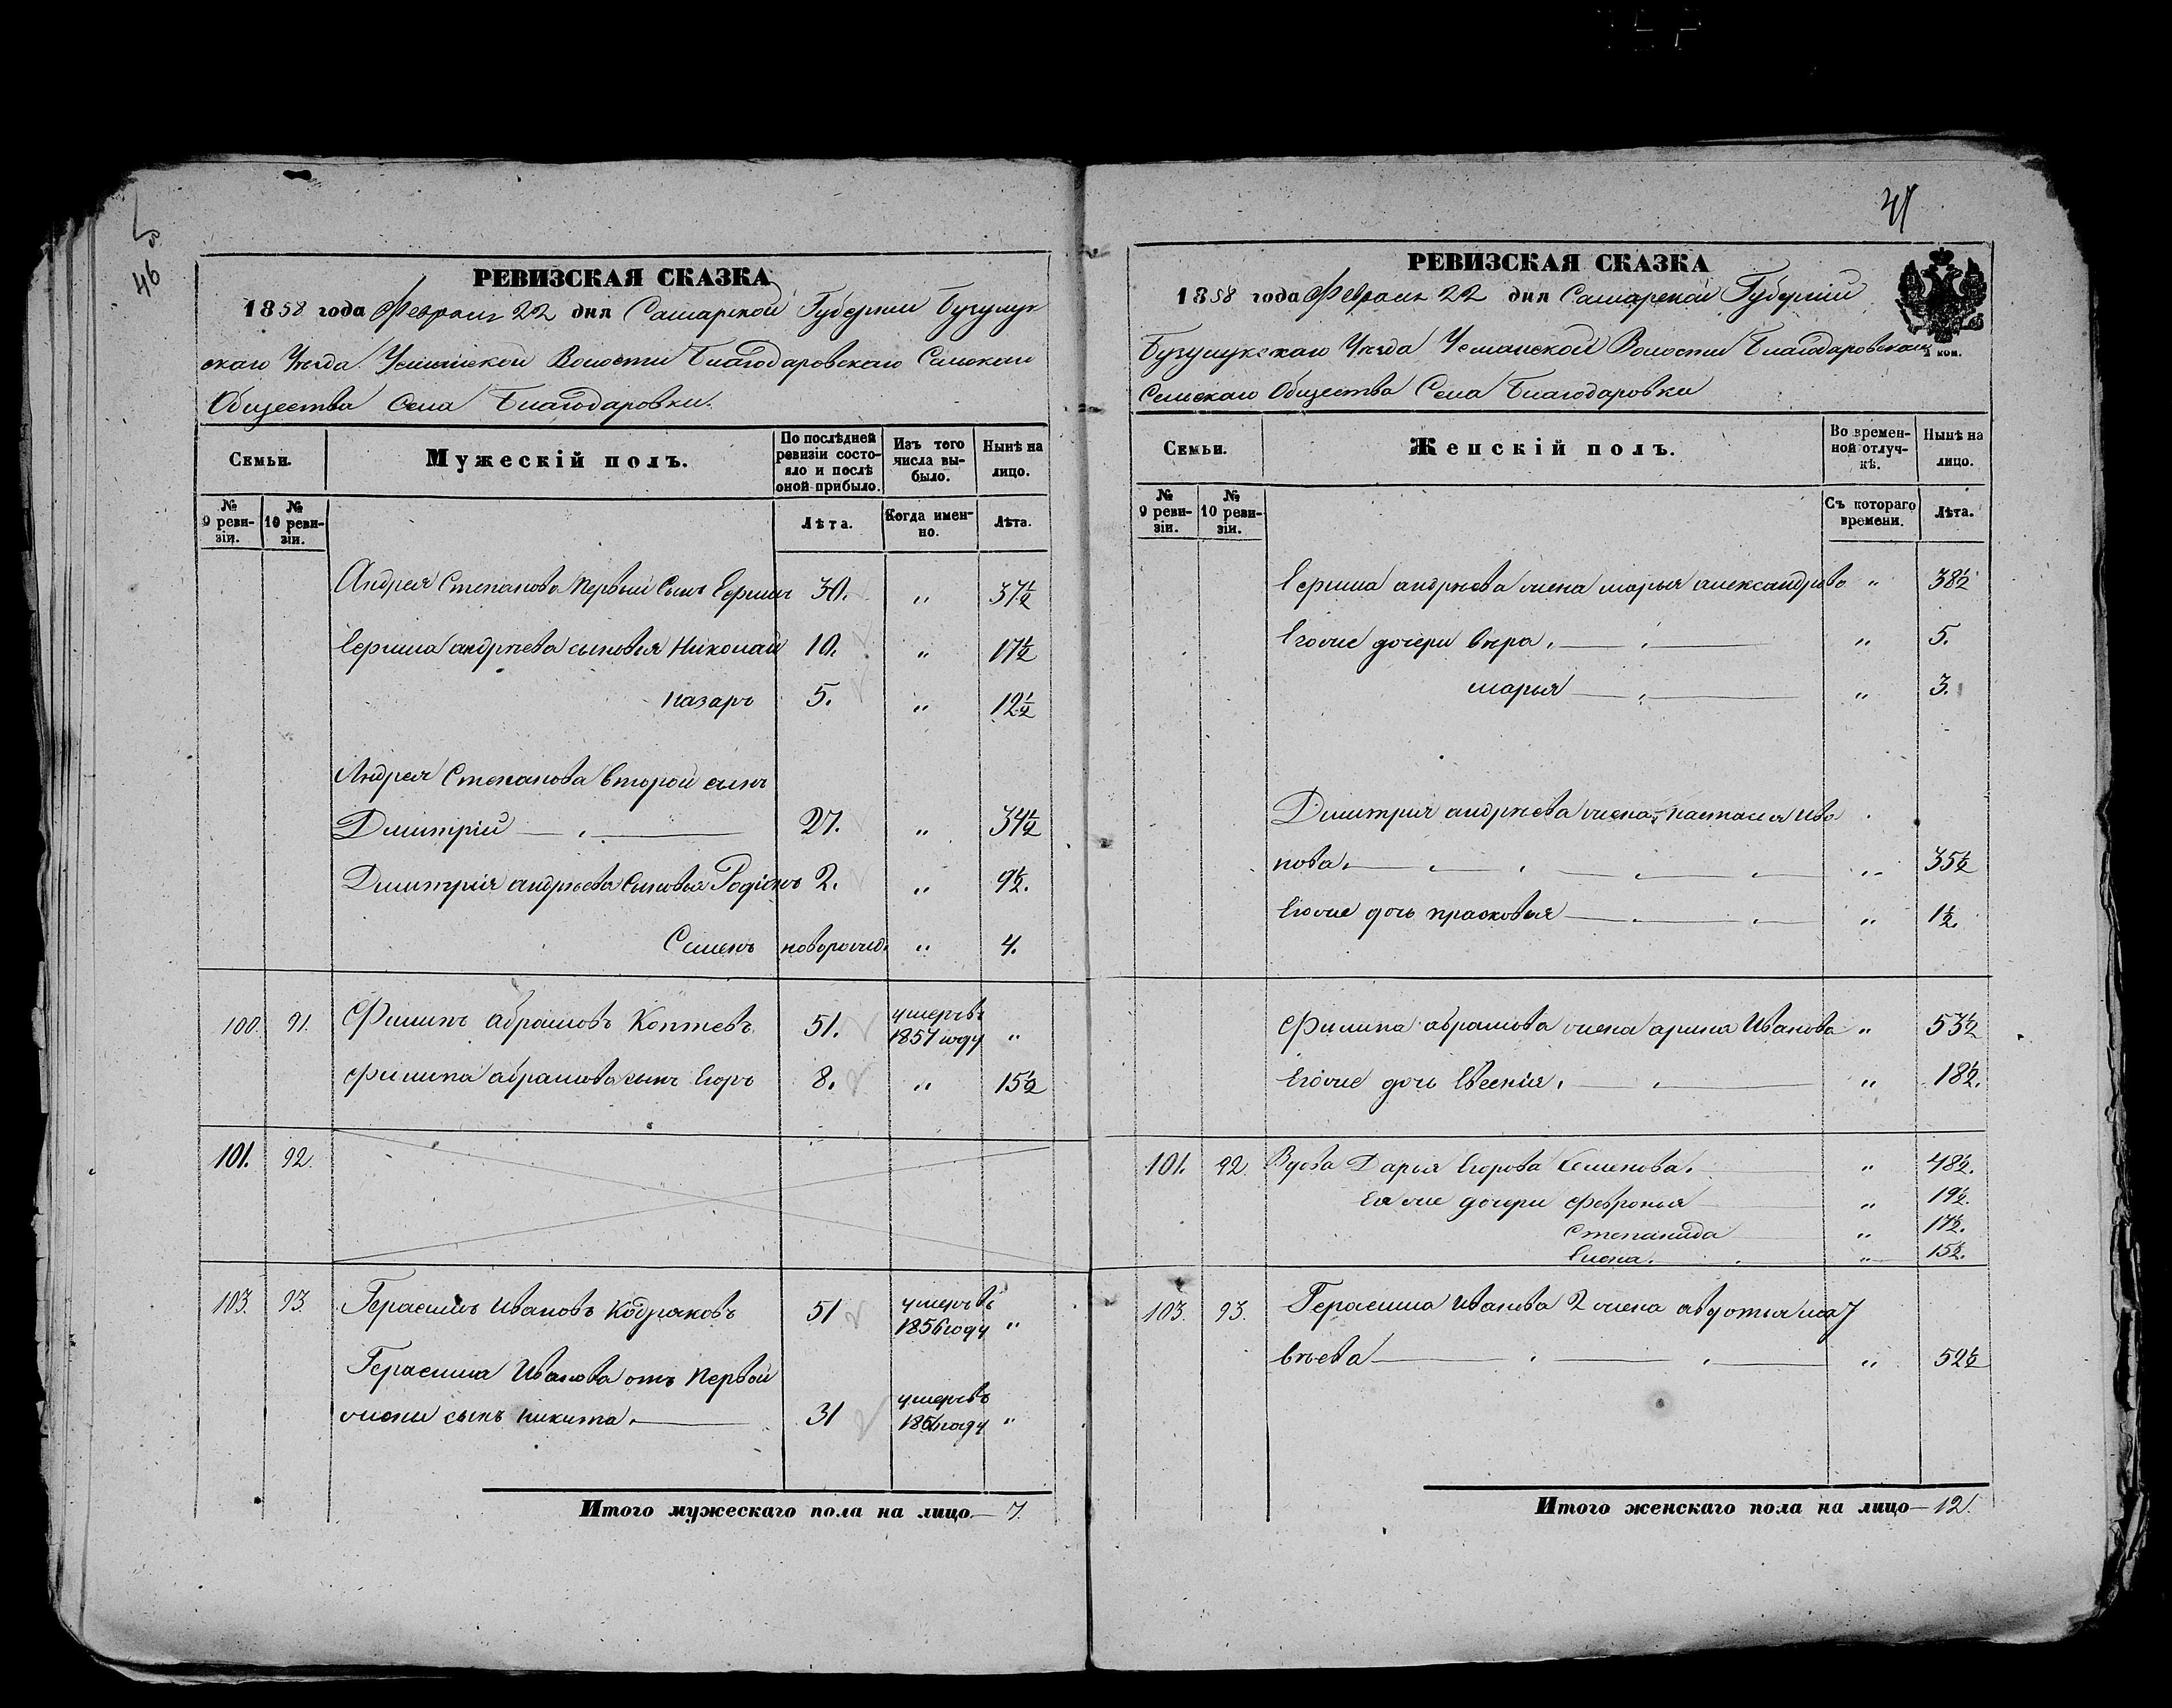 46
41
РЕВИЗСКАЯ СКАЗКА
1858 года Февраля 22 дня Самарской Губернии Бузулук
скаго Уѣзда Усманской Волости Благодаровскаго Сельскаго
Общества Села Благодаровки.
Семьи.
Мужескій полъ.
По послѣдней ревизіи состояло и послѣ оной прибыло.
Изъ того числа выбыло.
Нынѣ на лицо.
№ 9 ревизіи.
№ 10 ревизіи.
Лѣта.
Когда именно.
Лѣта.
Андрея Степанова Первый Сынъ 30. " 37½
андрѣева сыновья Николай 10. " 17½
назаръ 5. " 12½
Андрея Степанова второй сынъ
Димитрій 27. " 34½
Димитрія андрѣева сыновья Родіонъ 2. " 9½.
Семенъ новорожд. " 4.
100. 91. Филипъ абрамовъ Коптевъ 51. умеръ въ 1857 году "
Филипа абрамова сынъ Егоръ 8. " 15½
101. 92.
103. 93. Герасимъ Ивановъ 51 умеръ въ 1856 году "
Герасима Иванова отъ Первой
жены сынъ никита. 31 умеръ въ году "
Итого мужескаго пола на лицо 7.
РЕВИЗСКАЯ СКАЗКА
1858 года Февраля 22 дня Самарской Губерніи
Бузулукскаго Уѣзда Усманской Волости Благодаровскаго
Сельскаго Общества Села Благодаровки
коп.
Семьи.
Женскій полъ.
Во временной отлучкѣ.
Нынѣ на лицо.
№ 9 ревизіи.
№ 10 ревизіи.
Съ котораго времени.
Лѣта.
андрѣева жена марья александрова " 38½
Егоже дочери вѣра. " 5.
марья " 3.
Димитрія андрѣева жена настасья Ива
нова. " 35½
Егоже дочь прасковья " 1½.
Филипа абрамова жена арина Иванова " 53½
Егоже дочь Евсенія. " 18½.
101. 92. Вдова Дарья Егорова Семенова. " 48½.
Ея же дочери Февронья " 19½.
Степанида " 17½.
Елена. " 15½.
103. 93. Герасима Иванова 2 жена авдотья мат
вѣева " 52½
Итого женскаго пола на лицо 12.